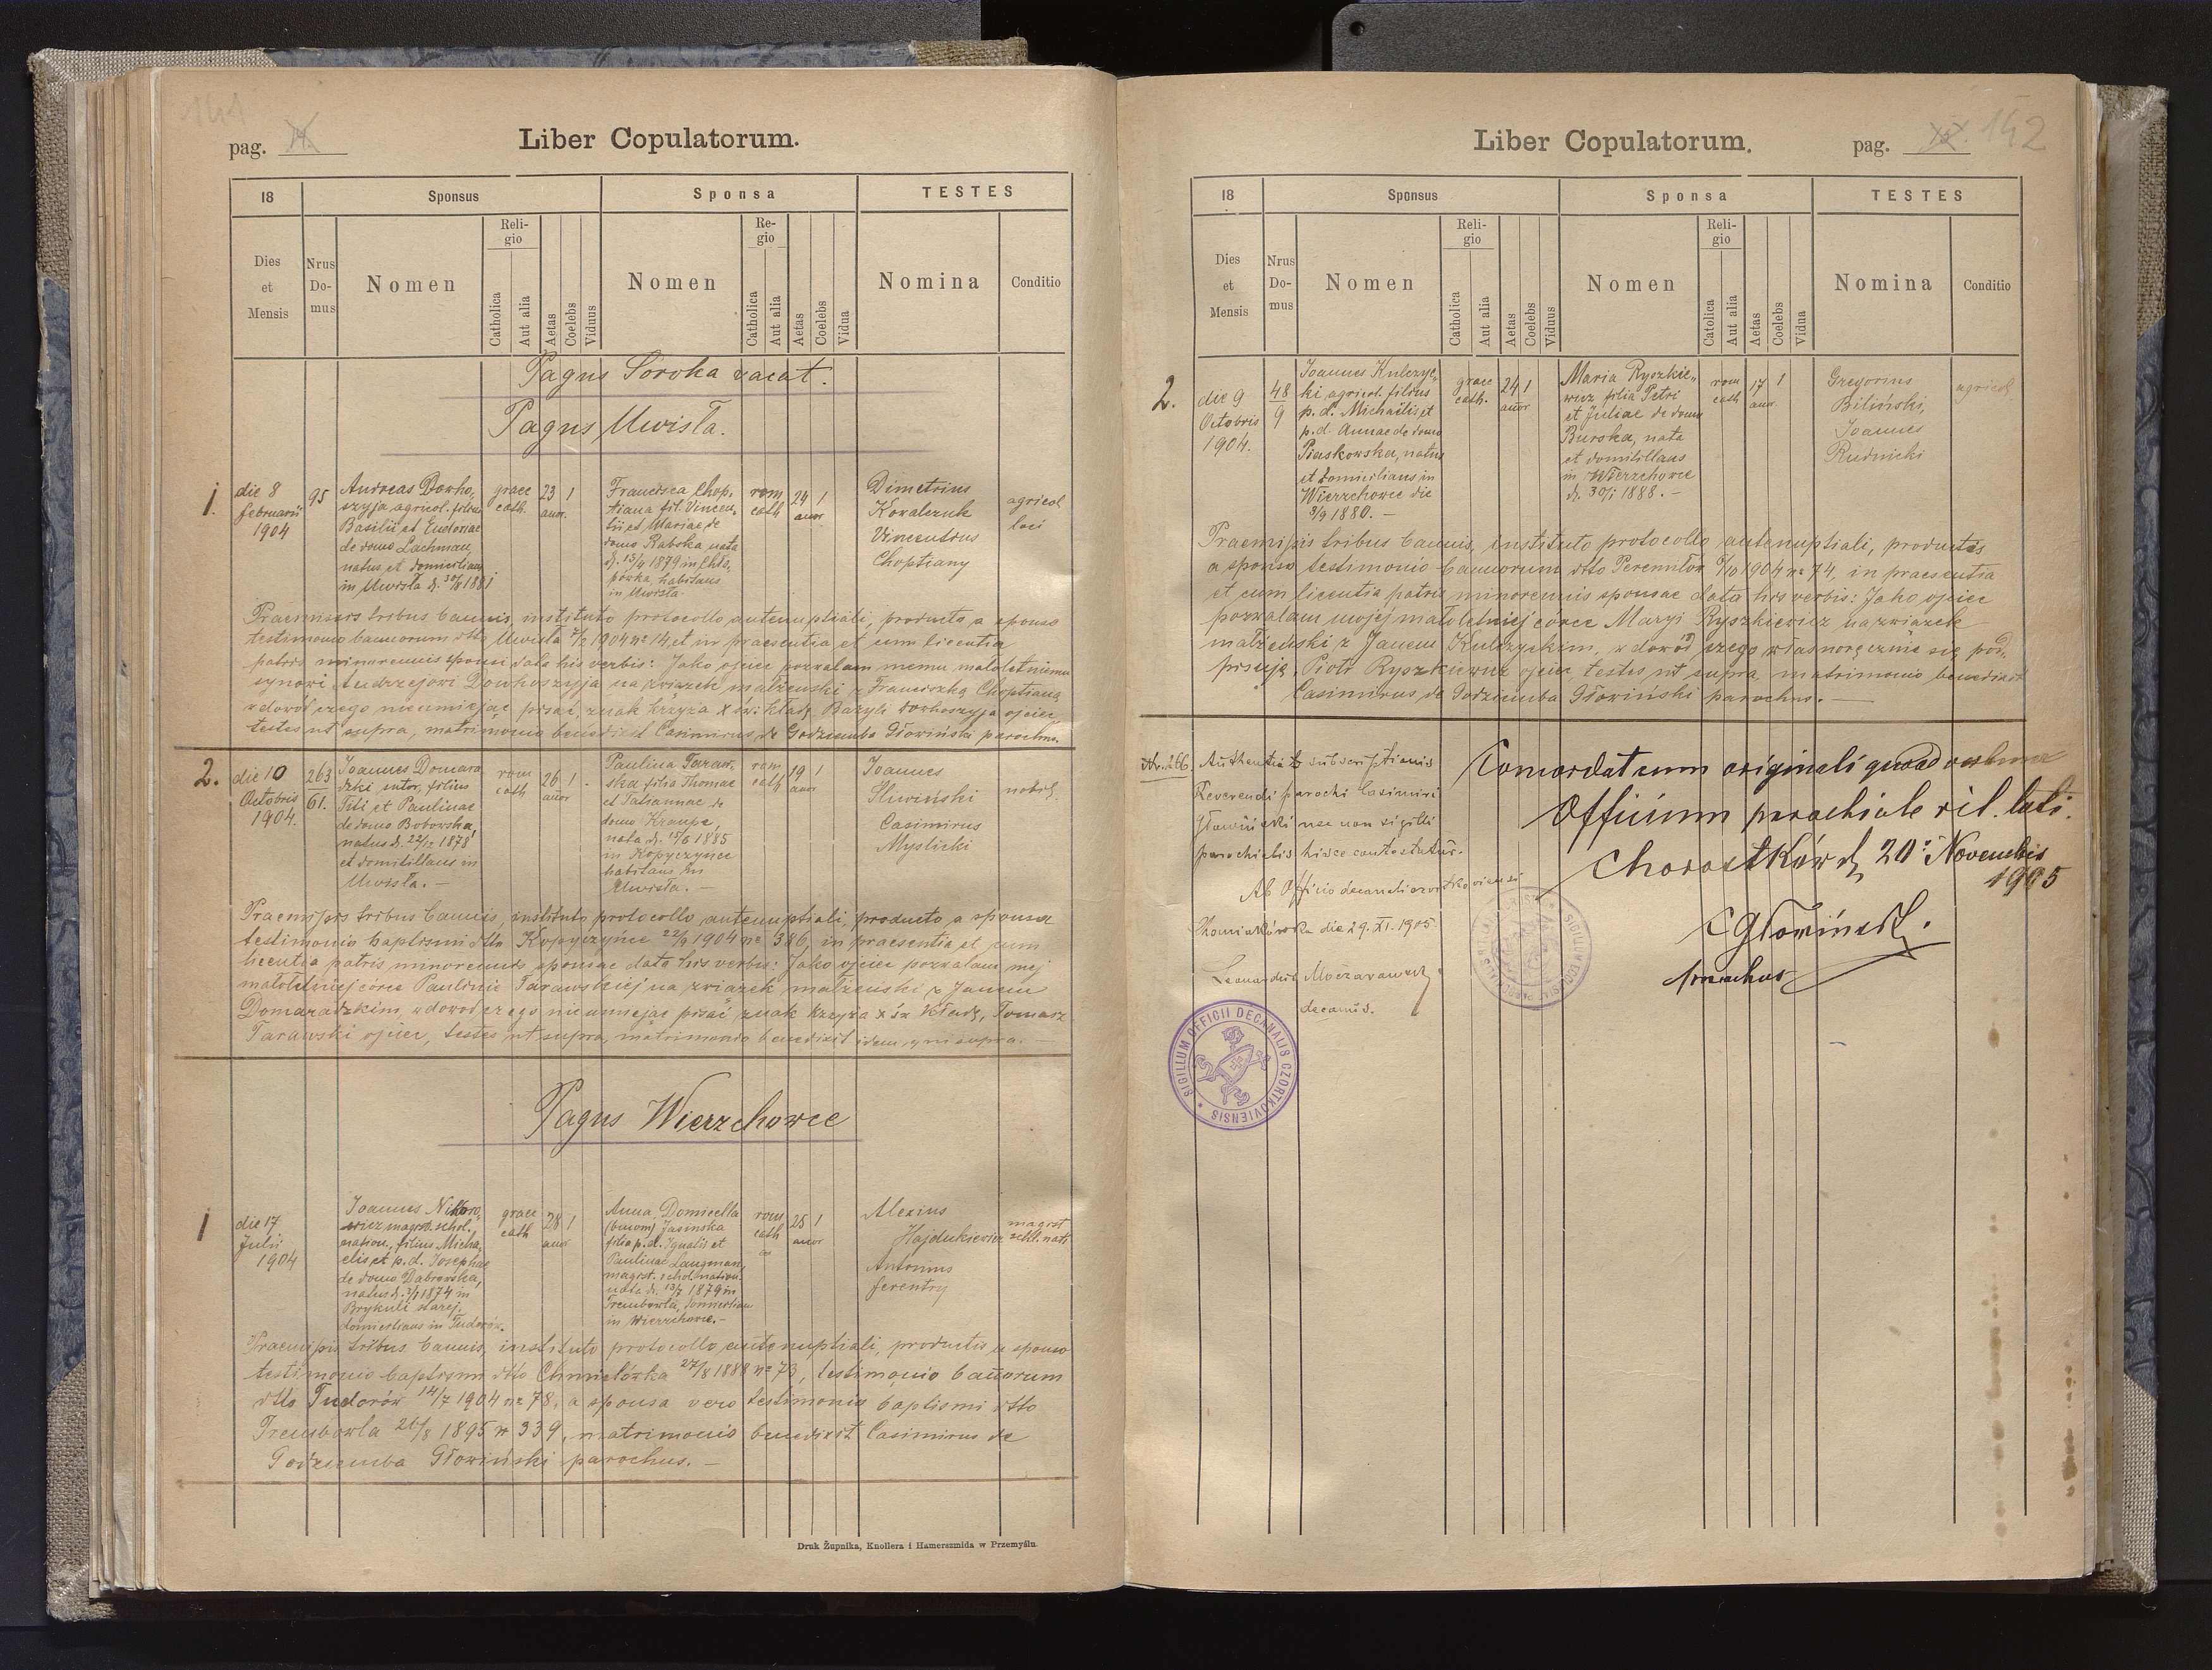 141
pag. 14.
Liber Copulatorum.
18
Sponsus
Sponsa
TESTES
Dies
et
Mensis
Nrus
Do-
mus
Nomen
Reli-
gio
Catholica
Aut alia
Aetas
Coelebs
Viduus
Nomen
Re-
gio
Catholica
Aut alia
Aetas
Coelebs
Vidua
Nomina
Conditio
Pagus Soroka vacat.
Pagus Uwisła.
1.
die 8
februarii
1904
95
Andreas Dowho,,
szyja, agricol. filius
Basilii et Eudoxiae
de domo Lachman,
natus et domicilians
in Uwisła d. 30/8 1881
graec
cath.
23
anor.
1
Francisca Chop,,
tiana fil. Vincen,,
tii et Mariae de
domo Raboka nata
d. 13/4 1879 in Chło,,
pówka, habitans
in Uwisła.
rom
cath
24
anor
1
Dimetrius
Kowalczuk
Vincentius
Choptiany
agricol
loci
Praemissis tribus bannis, instituto protocollo antenuptiali, producto a sponso
testimonio bannorum dtto Uwisła 7/2 1904 nr 14, et in praesentia et cum licentia
patris minorennis sponsi data his verbis: Jako ojciec pozwalam memu małoletniemu
synowi Andrzejowi Dowhoszyja na związek małżeński z Franciszką Choptianą
w dowód czego nieumiejąc pisać, znak krzyża X św. kładę Bazyli Dowhoszyja ojciec,
testes ut supra, matrimonio benedixit Casimirus de Godziemba Głowiński parochus.
2.
die 10
Octobris
1904.
263
61.
Joannes Domara
dzki sutor, filius
Titi et Paulinae
de domo Bobowska,
natus d. 22/12 1878
et domicillans in
Uwisła. —
rom
cath
26
anor
1
Paulina Taraw,,
ska filia Thomae
et Tatiannae de
domo Kraupe,
nata d. 15/6 1885
in Kopyczyńce
habitans in
Uwisła. —
rom
cath
19
anor
1
Joannes
Sliwiński
Casimirus
Myslicki
nobil.
Praemissis tribus bannis, instituto protocollo antenuptiali, producto a sponsa
testimonio baptismi dtto Kopyczyńce 22/9 1904 nr 386, in praesentia et cum
licentia patris minorennis sponsae data his verbis: Jako ojciec pozwalam mej
małoletniej córce Paulinie Tarawskiej na związek małżeński z Janem
Domaradzkim, w dowód czego nieumiejąc pisać, znak krzyża X św kładę, Tomasz
Tarawski ojciec, testes ut supra, matrimonio benedixit idem, qui supra. —
Pagus Wierzchowce
1
die 17
Julii
1904
Joannes Nikoro,,
wicz magist. schol.
nation., filius Micha,,
elis et p.d. Josephae
de domo Dąbrowska,
natus d. 3/1 1874 in
Brykuli starej,
domicilians in Tudorów.
graec
cath
28
anor
1
Anna, Domicella
(binom) Jasinska
filia p.d. Ignatii et
Paulinae Langman,
magist. schol. nation.
nata d. 13/7 1879 in
Trembowla, domicilians
in Wierzchowce. —
rom
cath
25
anor
1
Alexius
Hajdukiewicz
Antonius
ferentry
magist
schl. nati
Praemissis tribus bannis, instituto protocollo antenuptiali, productis a sponso
testimonio baptismi dtto Chmielówka 27/8 1888 nr 73, testimonio bannorum
dtto Tudorów 14/7 1904 nr 78, a sponsa vero testimonio baptismi dtto
Trembowla 26/8 1895 nr 339, matrimonio benedixit Casimirus de
Godziemba Głowiński parochus. —
Druk Żupnika, Knollera i Hamerszmida w Przemyślu.
Liber Copulatorum.
pag. 15. 142
18
Sponsus
Sponsa
TESTES
Dies
et
Mensis
Nrus
Do-
mus
Nomen
Reli-
gio
Catholica
Aut alia
Aetas
Coelebs
Viduus
Nomen
Reli-
gio
Catolica
Aut alia
Aetas
Coelebs
Vidua
Nomina
Conditio
2.
die 9
Octobris
1904.
48
9
Joannes Kulczyc,,
ki agricol. filius
p.d. Michaelis et
p.d. Annae de domo
Piaskowska, natus
et domicilians in
Wierzchowce die
3/9 1880. —
graec
cath.
24
anor
1
Maria Ryszkie,,
wicz filia Petri
et Juliae de domo
Burska, nata
et domicillans
in Wierzchowce
d. 30/1 1888. —
rom
cath
17
anor
1
Gregorius
Biliński,
Joannes
Rudnicki
agricol.
Praemissis tribus bannis, instituto protocollo antenuptiali, productis
a sponso testimonio bannorum dtto 1904 nr 74, in praesentia
et cum licentia patris minorennis sponsae data his verbis: Jako ojciec
pozwalam mojej małoletniej córce Maryi Ryszkiewicz na związek
małżeński z Janem Kulczyckim, w dowód czego własnoręcznie się pod,,
pisuję, Piotr Ryszkiewicz ojciec, testes ut supra, matrimonio benedixit
Casimirus de Godziemba Głowiński parochus. —
Nr. 266
Authentia subscriptionis
Reverendi parochi Casimiri
Głowiński nec non sigilli
parochialis hisce contestatur.
Ab Officio decanali czortkoviensi
Chomiakówka die 29. XI. 1905
Leonardus
decanus.
SIGILLUM OFFICII DECANALIS CZORTKOVIENSIS
Concordat cum originali quoad verbum
Officium parochiale rit. lat.
Chorostków d. 20. Novembris
1905
CGłowiński.
parochus